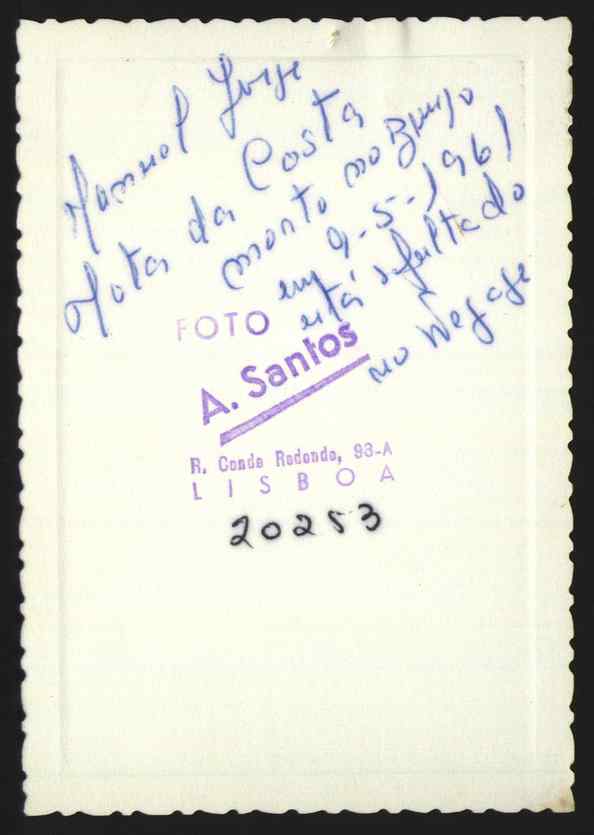 Manuel Jorge
Mota da Costa
morto no Bungo
em 9-5-1961
está sepultado
no Negage
FOTO
A. Santos
R. Conde Redondo, 93-A
LISBOA
20253